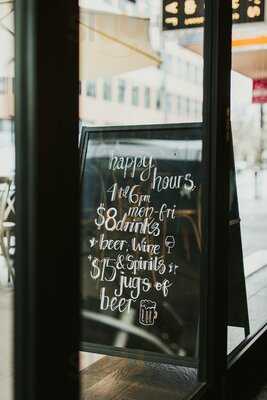 happy
hours
4 til 6pm
mon-fri
$8 drinks
beer, Wine
& Spirits
$15 jugs of
beer